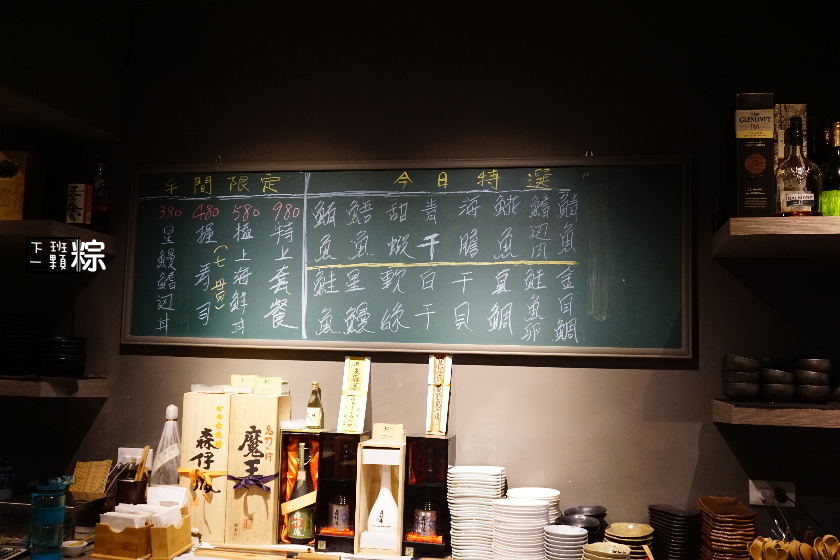 午間限定
今日特選
980 特上套餐
580 極上海鮮丼
480 握壽司（七貫）
380 星鰻鰭辺丼
鯖魚
鰭辺肉
魷魚
海膽
青干
甜蝦
鮨魚
鮪魚
金目鯛
鮭魚卵
真鯛
干貝
白干
軟絲
星鰻
鮭魚
下班
一顆
粽
森伊蔵
魔王
THE
GLENLIVET
DALMORE